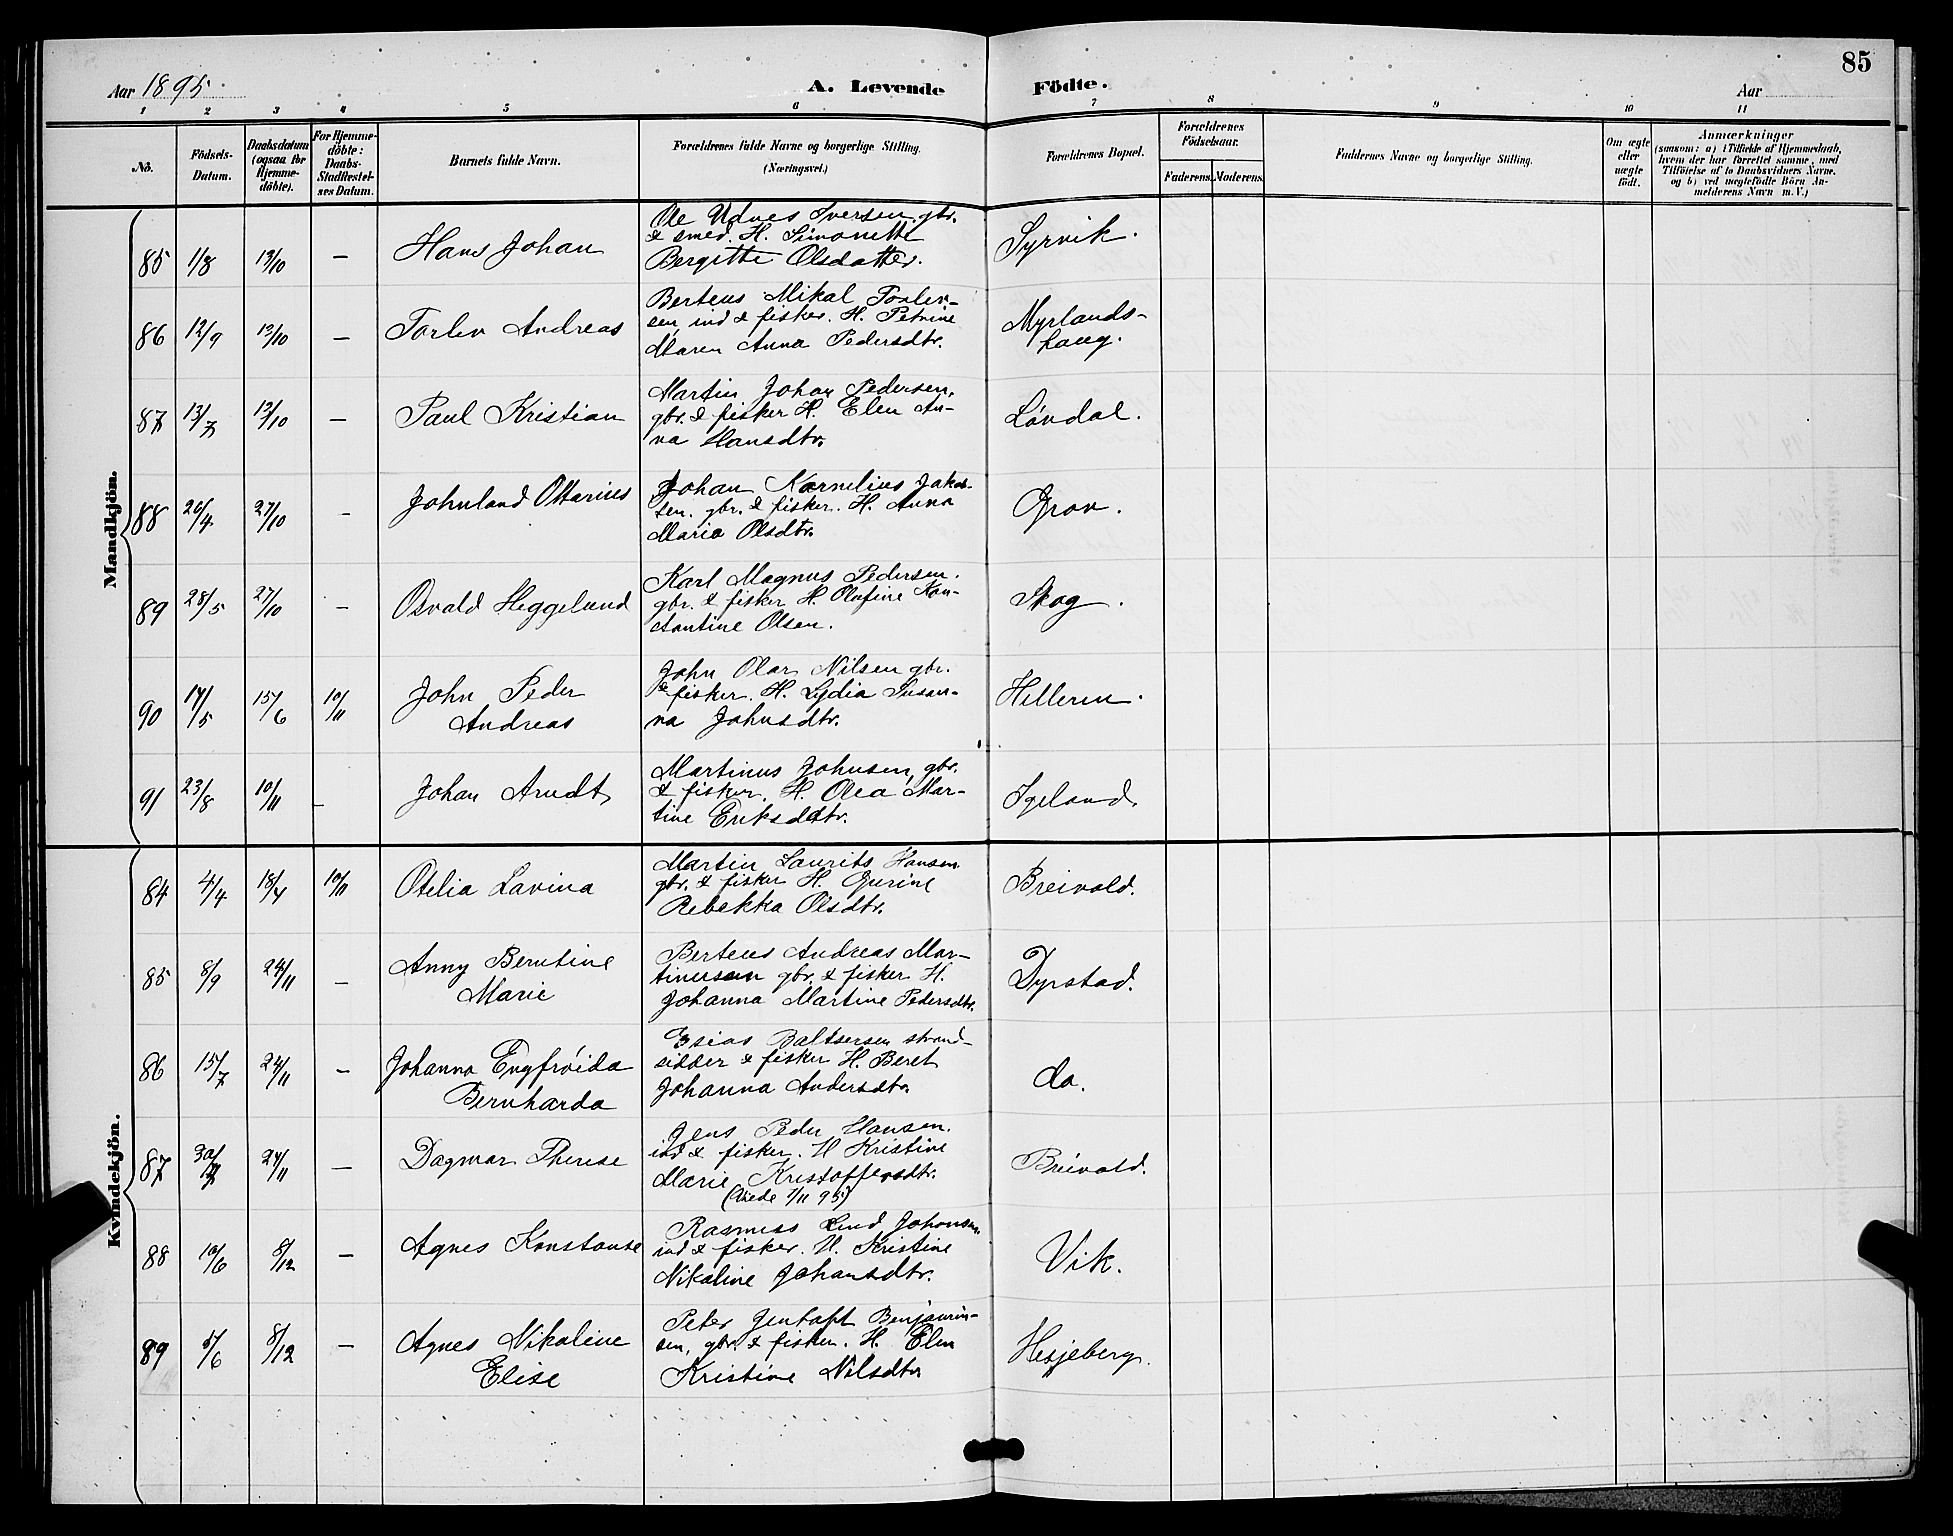 85
Aar 1895. A. Levende Födte. Aar
1 2 3 4 5 6 7 8 9 10 11
No.
Födsels-
Datum.
Daabsdatum
(ogsaa for
Hjemme-
döbte).
For Hjemme-
döbte:
Daabs-
Stadfestel-
ses Datum.
Barnets fulde Navn.
Forældrenes fulde Navne og borgerlige Stilling.
(Næringsvei.)
Forældrenes Bopæl.
Forældrenes
Födselsaar.
Faderens. Moderens.
Faddernes Navne og borgerlige Stilling.
Om ægte
eller
uægte
født.
Anmærkninger
(saasom: a) i Tilfælde af Hjemmedaab,
hvem der har forrettet samme, med
Tilföielse af to Daabsvidners Navne.
og b) ved uægtefödte Börn An-
melderens Navn m. V.)
Mandkjön.
85 1/8 13/10 — Hans Johan
Ole Udnes Iversen, gbr.
& smed. H. Simonette
Bergitte Olsdatter.
Syrvik.
86 12/9 13/10 — Torlev Andreas
Berteus Mikal Torlev-
sen, ind & fisker. H. Petrine
Maren Anna Pedersdtr.
Myrlands-
haug.
87 13/7 13/10 — Paul Kristian
Martin Johan Pedersen,
gbr. & fisker H. Elen An-
na Hansdtr.
Løvdal.
88 26/4 27/10 — Johnland Ottarius
Johan Kornelius Jakob-
sen. gbr. & fisker. H. Anna
Maria Olsdtr.
Grov.
89 28/5 27/10 — Osvald Heggelund
Karl Magnus Pedersen.
gbr. & fisker H. Olufine Kon-
stantine Olsen.
Skog.
90 17/5 15/6 10/11 John Peder
Andreas
John Olar Nilsen gbr.
& fisker. H. Lydia Susan-
na Johnsdtr.
Helleren.
91 23/8 10/11 — Johan Arndt
Martinus Johnsen, gbr.
& fisker. H. Olea Mar-
tine Eriksdtr.
Igeland.
Kvindekjön.
84 4/4 18/4 10/11 Otelia Lavina
Martin Laurits Hansen
gbr. & fisker H. Gurine
Rebekka Olsdtr.
Breivold.
85 8/9 24/11 — Anny Berntine
Marie
Berteus Andreas Mar-
tinussen gbr. & fisker H.
Johanna Martine Pedersdtr.
Dyrstad.
86 15/7 24/11 — Johanna Engfrøida
Bernharda
Esias Baltsersen strand-
sidder & fisker H. Beret
Johanna Andersdtr.
do.
87 30/7 24/11 — Dagmar Therese
Jens Peder Hansen.
ind & fisker. H Kristine
Marie Kristoffersdtr.
(viede 1/11 95)
Breivold.
88 10/6 8/12 — Agnes Konstanse
Rasmus Lind Johansen
ind & fisker. H. Kristine
Nikoline Johansdtr.
Vik.
89 5/6 8/12 — Agnes Nikoline
Elise
Peter Jentoft Benjamin-
sen, gbr. & fisker. H. Elen
Kristine Nilsdtr.
Hesjeberg.